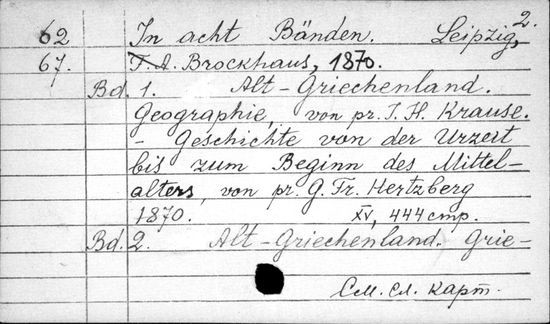 2.
62 In acht Bänden. Leipzig,
67. F. A. Brockhaus, 1870.
Bd. 1. Alt-Griechenland.
Geographie, von pr. J. H. Krause.
- Geschichte von der Urzeit
bis zum Beginn des Mittel-
alters, von pr. G. Fr. Hertzberg
1870. XV, 444 стр.
Bd. 2. Alt-Griechenland. Grie-
См. сл. карт.